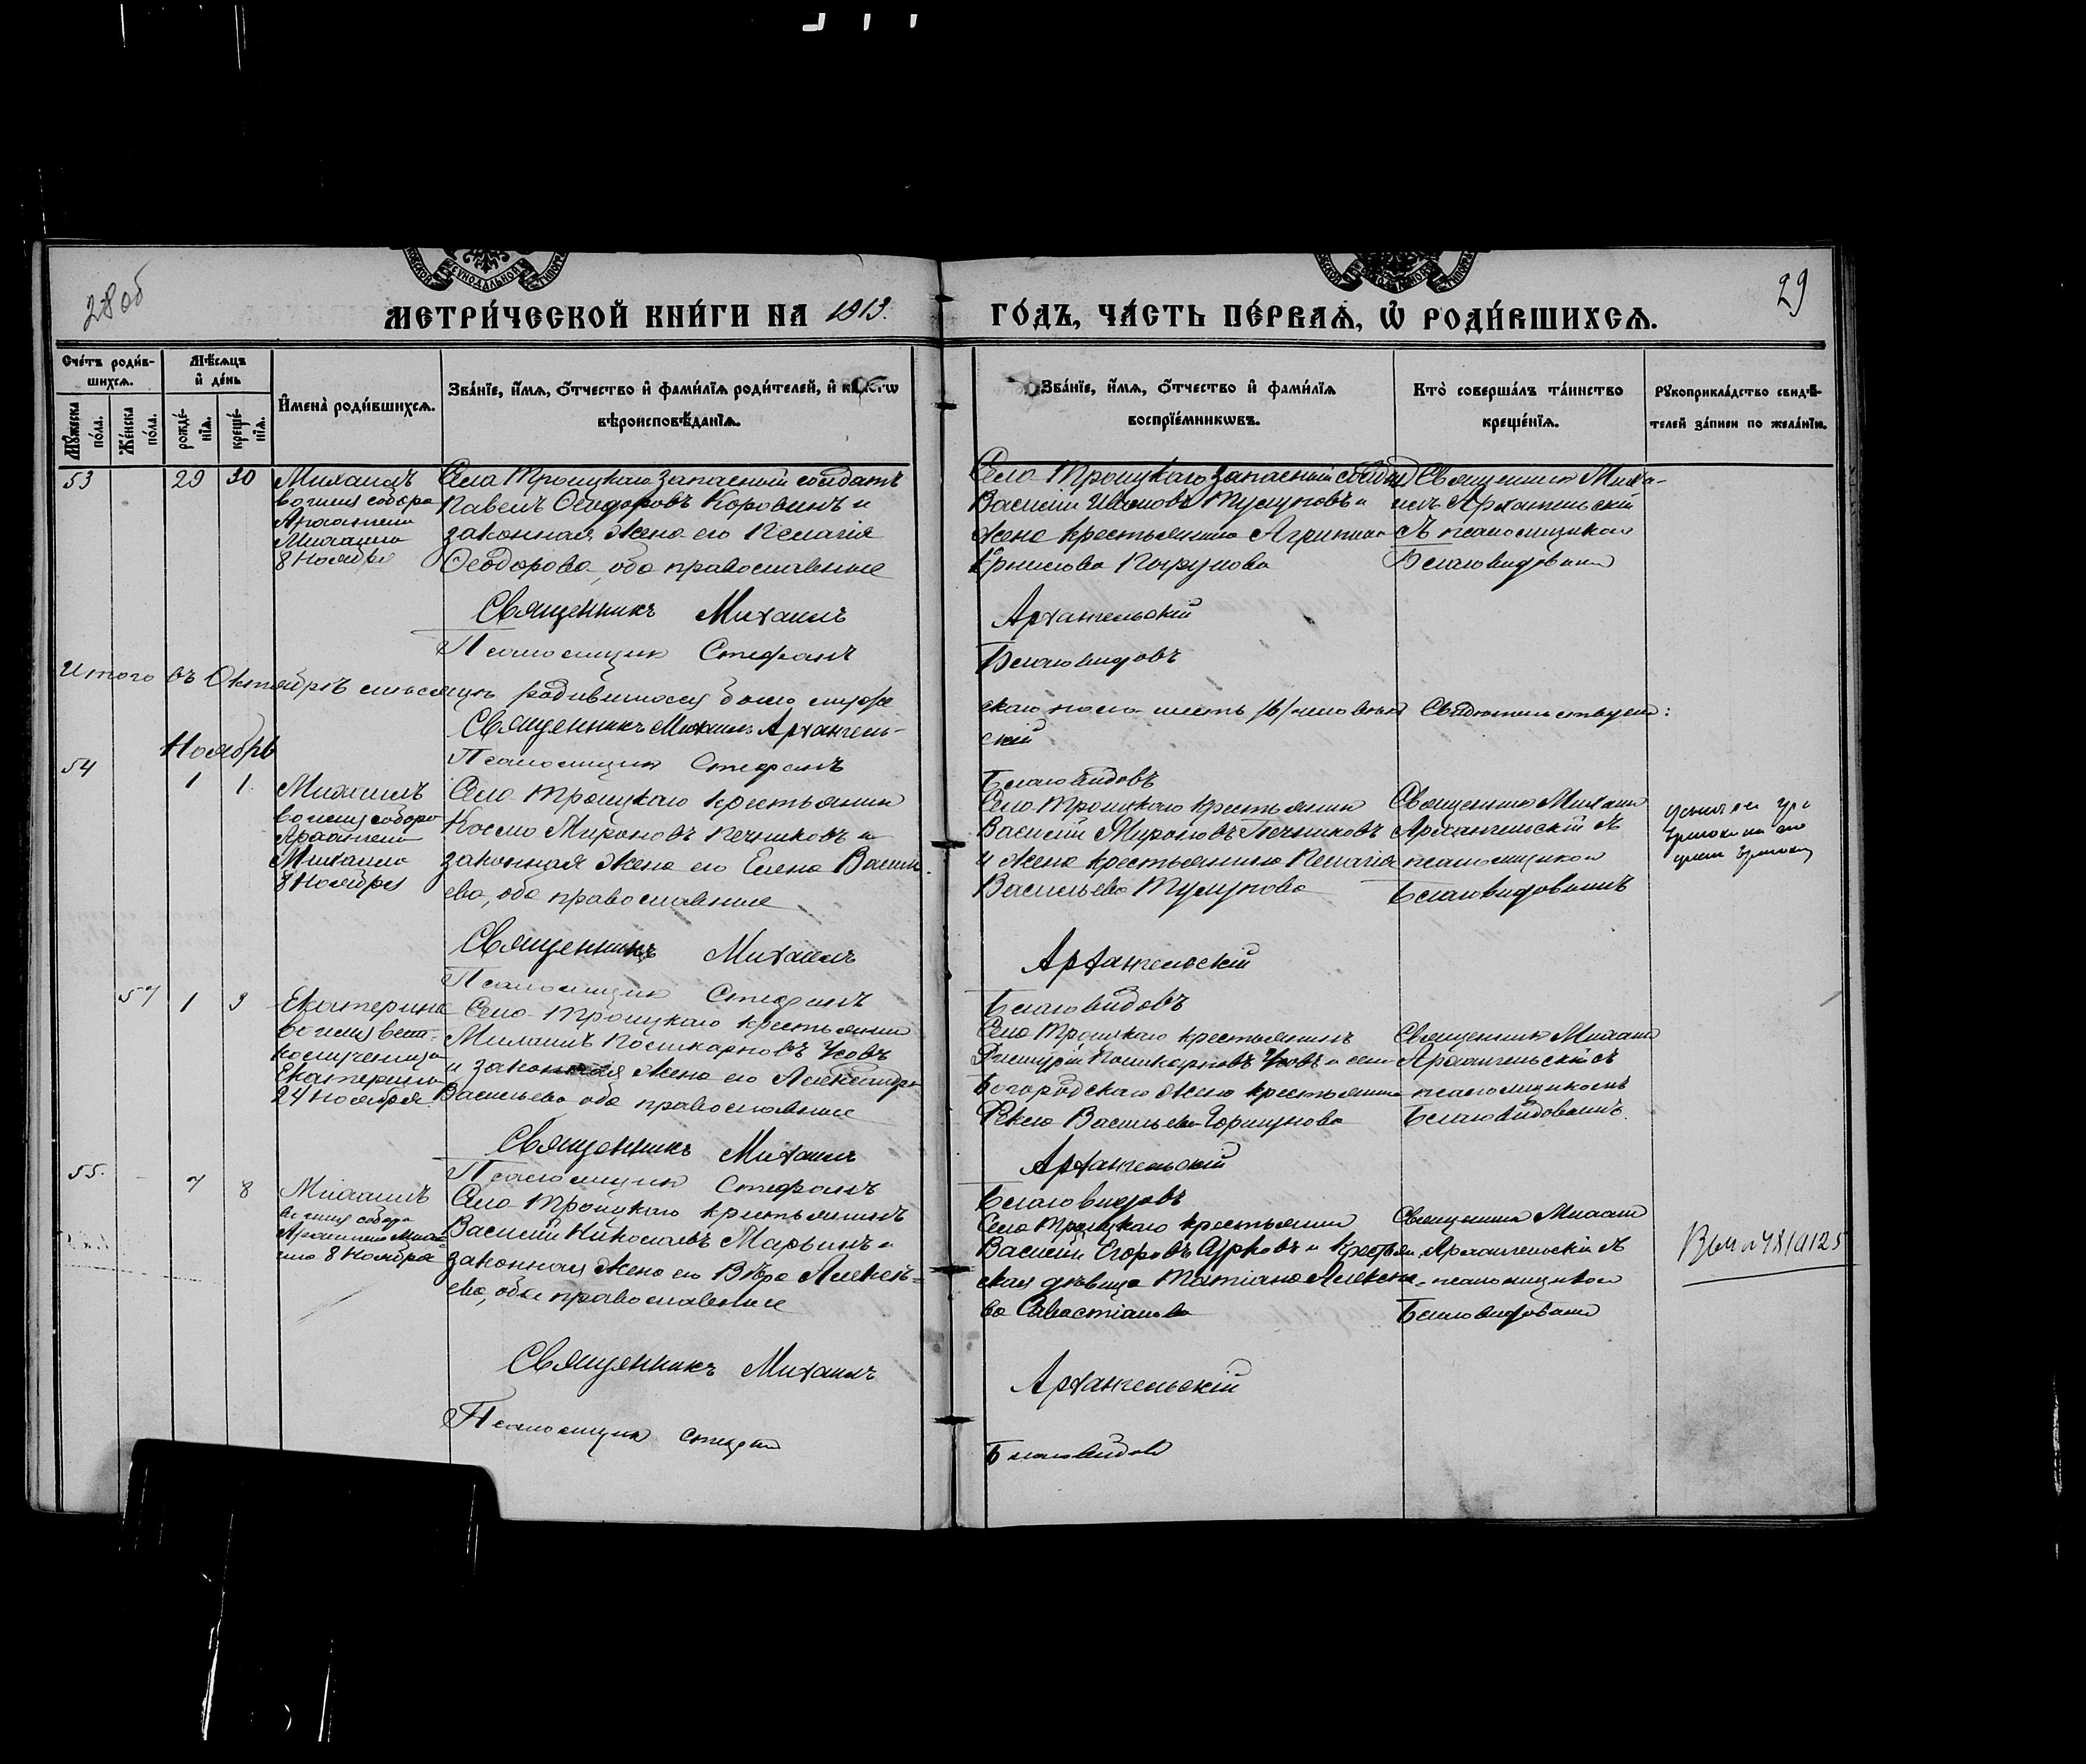 28 об
29
МЕТРИ́ЧЕСКОЙ КНИ́ГИ НА 1913. ГО́ДЪ, ЧА́СТЬ ПЕ́РВАѦ, Ѡ҆ РОДИ́ВШИХСѦ.
Сче́тъ роди́в-
шихсѧ.
Мѣ́сѧцъ
и҆ де́нь
Мꙋ́жеска по́ла.
Же́нска по́ла.
рожде́-
нїѧ.
креще́-
нїѧ.
И҆мена̀ роди́вшихсѧ.
Зва́нїе, и҆́мѧ, ѻ҆́тчество и҆ фами́лїѧ роди́телей, и҆
вѣроисповѣ́данїѧ.
Зва́нїе, и҆́мѧ, ѻ҆́тчество и҆ фами́лїѧ
воспрїе́мникѡвъ.
Кто̀ соверша́лъ та́инство
креще́нїѧ.
Рꙋкоприкла́дство свидѣ́-
телей за́писи по жела́нїю.
53
29 30
Михаилъ
во имя собора
Архангела
Михаила
8 Ноября
Села Троицкаго запасный солдатъ
Павелъ Сидоровъ Коровинъ и
законная жена его Пелагія
Ѳеодорова, оба православные
Села Троицкаго запасный солдат
Василій Ивановъ Тулуповъ и
жена крестьянина Агрипина
Священник Миха-
илъ Архангельскій
съ псаломщиком
Благовидовым
Священникъ Михаилъ Архангельскій
Псаломщик Стефанъ Благовидовъ
Итого въ Октябрѣ месяцѣ родившихся было муже
скаго пола шесть /6/ человѣкъ Свидѣтельствуем:
Священникъ Михаилъ Архангель-
скій
Псаломщик Стефанъ Благовидовъ
Ноябрь
54
1 1.
Михаилъ
во имя собора
Архангела
Михаила
8 Ноября
Села Троицкаго крестьянин
Косма Мироновъ Печниковъ и
законная жена его Елена Василь
ева, оба православные
Села Троицкаго крестьянин
Василій Мироновъ Печников
и жена крестьянина Пелагія
Васильева Тулупова
Священник Михаил
Архангельскій съ
псаломщиком
Благовидовымъ
Священникъ Михаилъ Архангельскій
Псаломщик Стефанъ Благовидовъ
57
1 3
Екатерина
во имя вели-
комученицы
Екатерины
24 Ноября.
Села Троицкаго крестьянин
Михаилъ Поликарповъ Усовъ
и законная жена его Александра
Васильева оба православные
Села Троицкаго крестьянинъ
Поликарповъ Усовъ и села
Богородскаго жена крестьянина
Васильева Горшунова
Священник Михаил
Архангельскій съ
псаломщикомъ
Благовидовымъ.
Священникъ Михаилъ Архангельскій
Псаломщик Стефанъ Благовидовъ
55.
7 8
Михаилъ
во имя собора
Архангела Миха-
ила 8 Ноября
Села Троицкаго крестьянинъ
Василій Николаевъ Марьинъ и
законная жена его Вѣра Алексѣ=
ева, оба православные
Села Троицкаго крестьянин
Василій Егоровъ и крестьян
ская дѣвица Татіана Алексѣе
ва Савостіанова
Священник Михаил
Архангельскій съ
псаломщиком
Благовидовым
Священникъ Михаилъ Архангельскій
Псаломщик Стефан Благовидов